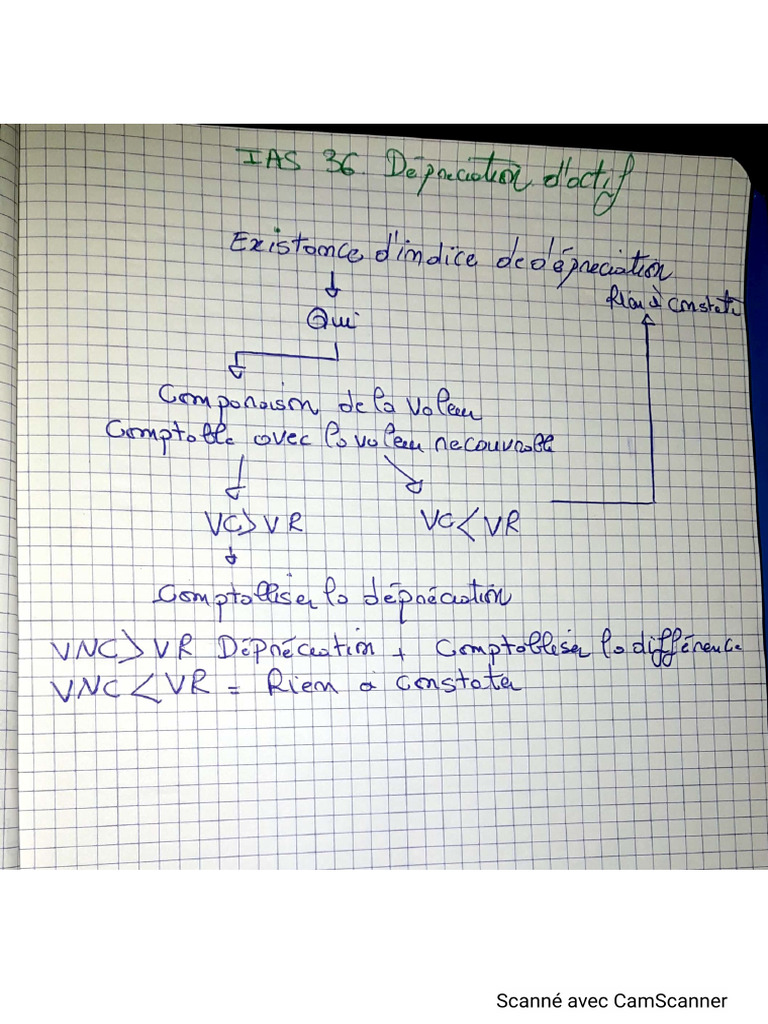 IAS 36. Dépréciation d'actif
Existance d'indice de dépréciation
Rien à constater
Oui
Comparaison de la valeur
Comptable avec la valeur recouvrable
VC > VR
VC < VR
Comptabiliser la dépréciation
VNC > VR Dépréciation + Comptabiliser la différence
VNC < VR = Rien à constater
Scanné avec CamScanner